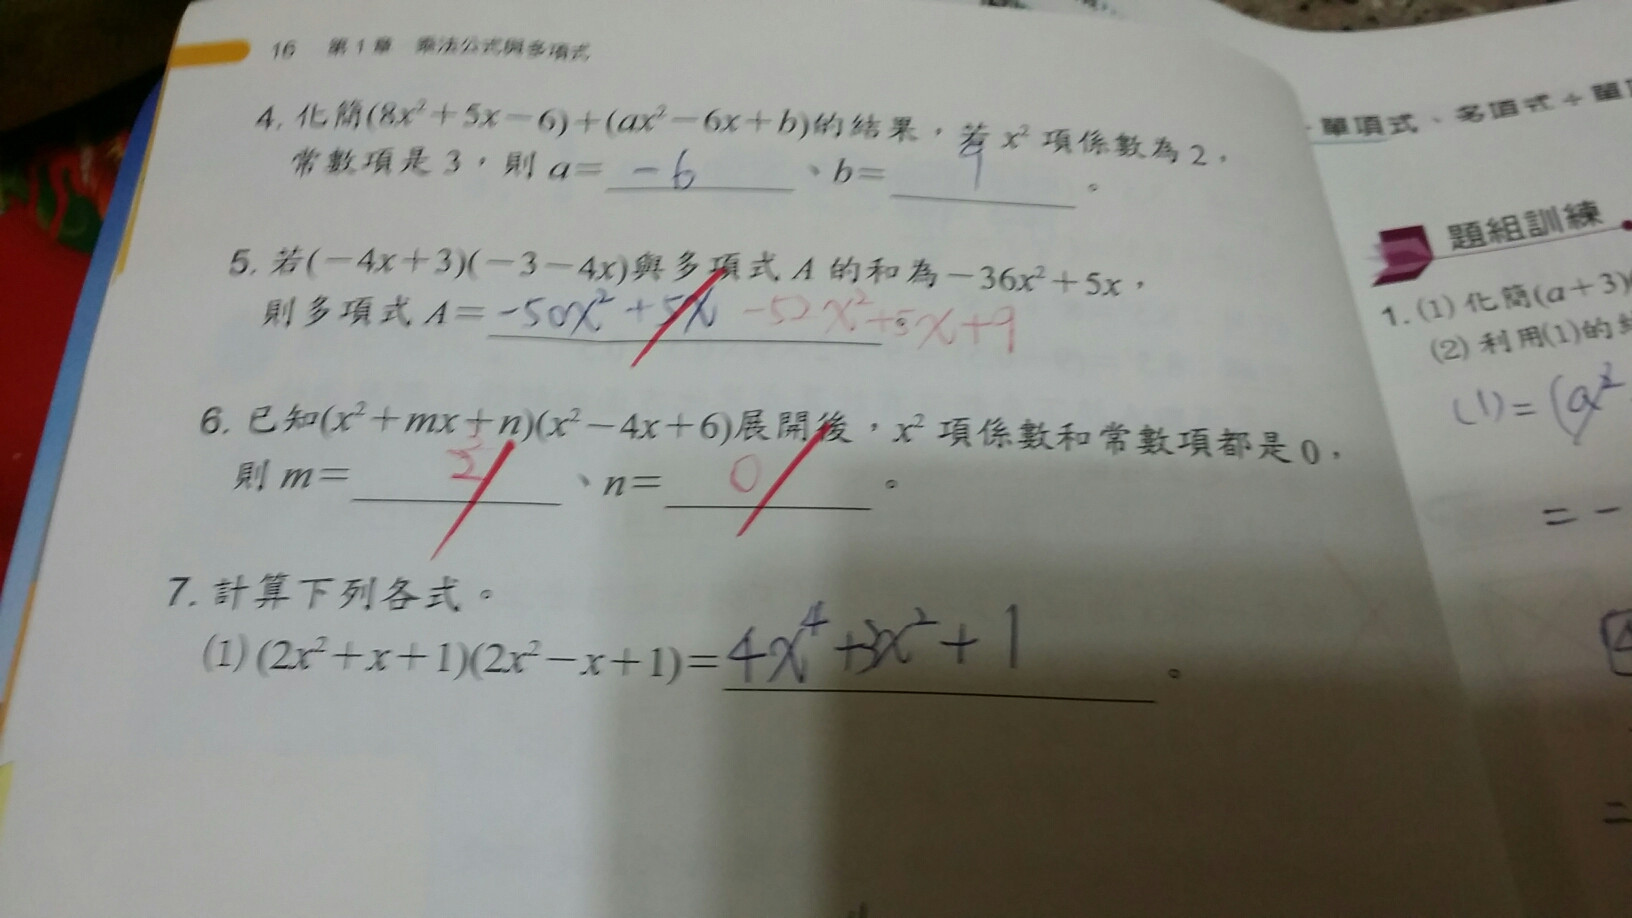 16 第1章 乘法公式與多項式
4. 化簡(8x²+5x-6)+(ax²-6x+b)的結果,若 x² 項係數為 2,
常數項是 3,則 a= -6 、b= 9 。
5. 若(-4x+3)(-3-4x)與多項式 A 的和為-36x²+5x,
則多項式 A= -50x²+5x -52x²+5x+9
6. 已知(x²+mx+n)(x²-4x+6)展開後,x² 項係數和常數項都是 0,
則 m= 2 、n= 0 。
7. 計算下列各式。
(1)(2x²+x+1)(2x²-x+1)= 4x⁴+3x²+1 。
單項式、多項式÷單
題組訓練
1. (1) 化簡(a+3)
(2) 利用(1)的
(1)=(a²
= -
=